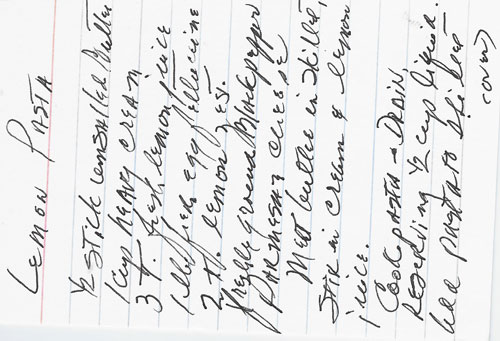 LEMON PASTA
½ STICK UNSALTED BUTTER
1 CUP HEAVY CREAM
3 T fresh lemon juice
1 lb fresh egg fettucine
2 t. lemon zest
freshly ground Black pepper
PARMESAN CHEESE
Melt butter in skillet,
Stir in cream & lemon
juice.
COOK PASTA - DRAIN,
RESERVING ½ cup liquid.
Add PASTA TO skillet
(over)